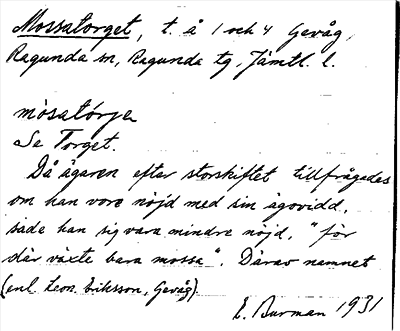 Mossatorget, t. å 1 och 4 Gevåg,
Ragunda sn, Ragunda tg, Jämtl. l.
mòsatórje
Se Torget.
Då ägaren efter storskiftet tillfrågades
om han vore nöjd med sin ägovidd,
sade han sig vara mindre nöjd, "för
där växte bara mossa". Därav namnet
(enl. Leon. Eriksson, Gevåg)
E. Burman 1931